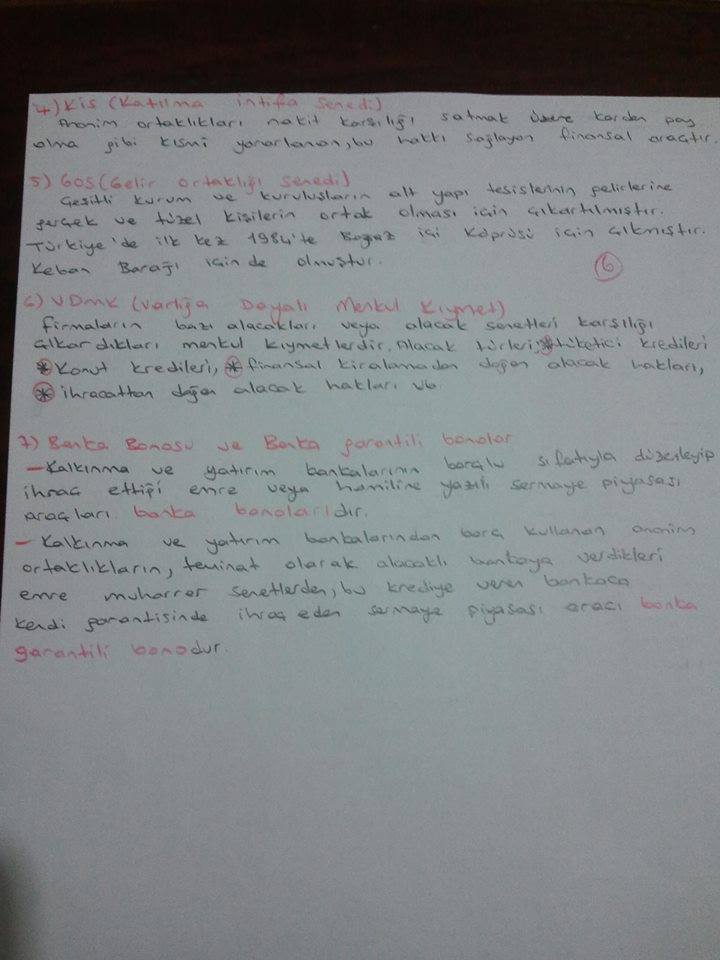 4) KİS (Katılma intifa Senedi)
Anonim ortaklıkları nakit karşılığı satmak üzere kardan pay
olma gibi kısmi yararlanan, bu hakkı sağlayan finansal araçtır.
5) GOS (Gelir Ortaklığı Senedi)
Çeşitli kurum ve kuruluşların alt yapı tesislerinin gelirlerine
gerçek ve tüzel kişilerin ortak olması için çıkartılmıştır.
Türkiye'de ilk kez 1984'te Bogaz içi Köprüsü için çıkmıştır.
Keban Barağı için de olmuştur.
6
6) VDMK (Varlığa Dayalı Menkul Kıymet)
firmaların bazı alacakları veya alacak senetleri karşılığı
çıkardıkları menkul kıymetlerdir. Alacak türleri; * tüketici kredileri
* Konut kredileri, * finansal kiralamadan doğan alacak hakları,
* ihracattan doğan alacak hakları vb.
7) Banka Bonosu ve Banka garantili bonolar
- Kalkınma ve yatırım bankalarının borçlu sıfatıyla düzenleyip
ihraç ettiği emre veya hamiline yazılı sermaye piyasası
araçları banka bonolarıdır.
- Kalkınma ve yatırım bankalarından borç kullanan anonim
ortaklıkların, teminat olarak alacaklı bankaya verdikleri
emre muharrer senetlerden, bu krediye veren bankaca
kendi garantisinde ihraç eden sermaye piyasası aracı banka
garantili bonodur.